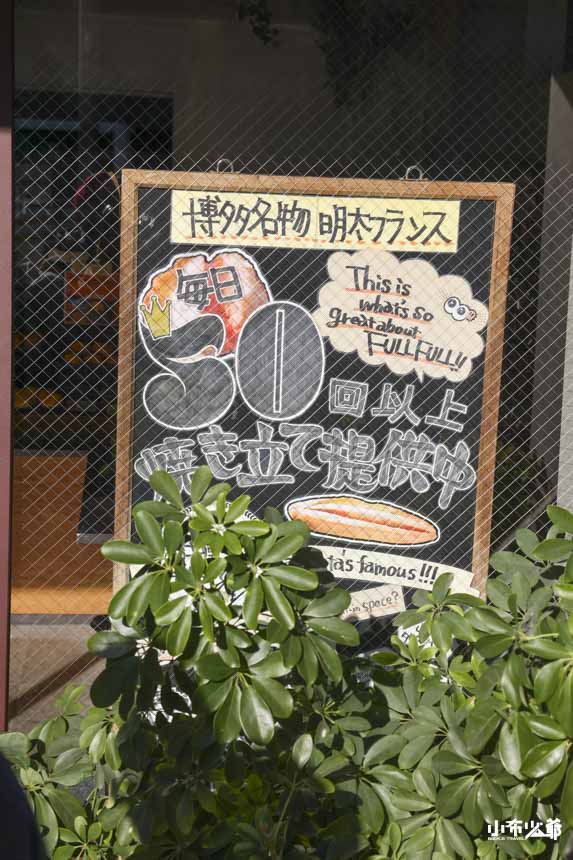 博多名物 明太フランス
毎日
50
回以上
焼き立て提供中
This is
what's so
great about
FULLFULL!!
ta's famous!!!
space?
小布少爺